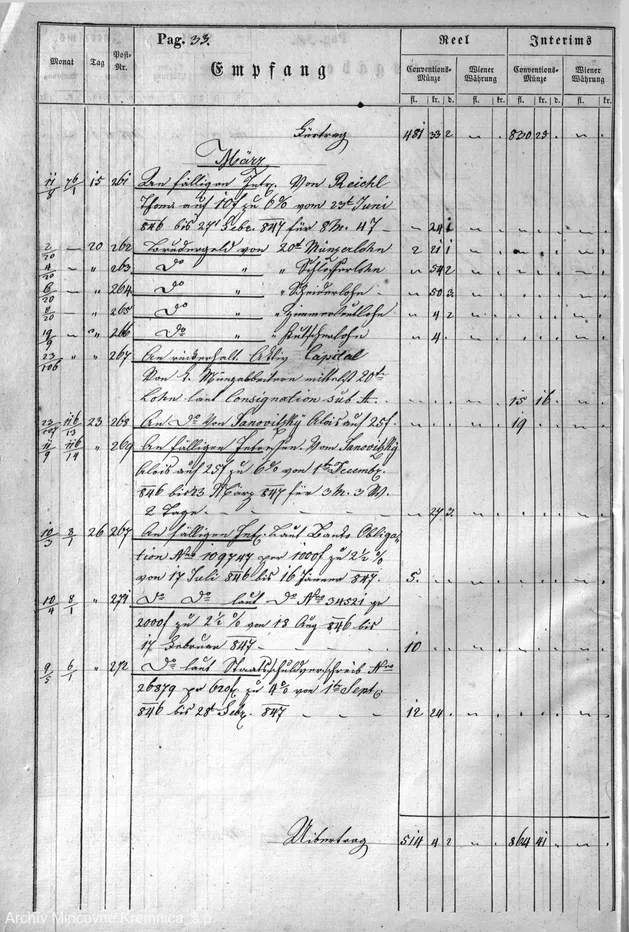 Pag. 33.
Empfang
Monat Tag Post-Nr.
Reel Interims
Conventions-Münze Wiener Währung Conventions-Münze Wiener Währung
fl. kr. d. fl. kr. fl. kr. d. fl. kr.
Fürtrag 481 33 2 " " 830 23 . " .
März
11/8 76/1 15 261 An fälligen Intr. Von Reichl
Thoms auf 10f zu 6% vom 23t Juni
846 bis 27t Febr. 847 für 8 M. 4T — " 24 1
2/20 — 20 262 Brudergeld von 20t Münzerlohn 2 21 1
4/20 — " 263 Do " " Schlosserlohn " 54 2
6/20 — " 264 Do " " Schneiderlohn " 50 3.
8/20 — " 265 Do " " Zimmerleutlohn " 4 2
19/9 — " 266 Do " " Kutscherlohn " 4 .
23/106 " " 267 An rückerhalt. Aktiv Capital
Von k. Münzarbeitern mittelst 20t
Lohn laut Consignation sub A. 15 16
116/13 23 268 An Do Von Janovitzky Alois auf 25f. 19
11/9 116/14 " 269 An fälligen Intressen. Vom Janovitzky
Alois auf 25f zu 6% von 1ten Decembr.
846 bis 23 März 847 für 3 M. 3 W.
2 Tage — " 27 3.
10/3 8/1 26 267 An fälligen Intr. laut Banko Obliga-
tion Nro 109747 per 1000f zu 2½ %
von 17 Juli 846 bis 16 Jänner 847. 5
10/4 8/1 " 271 Do Do laut Do Nro 34521 pr
2000f zu 2½ % von 18 Aug 846 bis
17 Februar 847 — 10
9/5 6/1 " 272 Do laut Staatsschuldverschreib Nro
26879 pr 620f zu 4% von 1ten Sept
846 bis 28t Febr. 847 — 12 24
Uibertrag 514 4 2 " " 864 41 . " .
Archív Mincovne Kremnica, š.p.